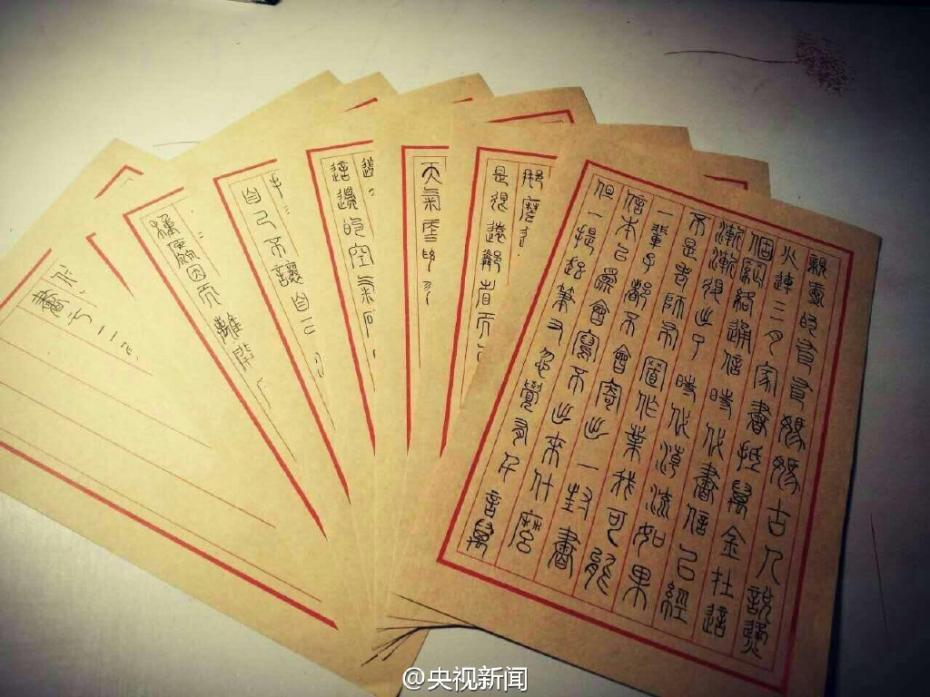 親愛的爸爸媽媽古人說烽
火連三月家書抵萬金在這
個網絡通信時代書信已經
漸漸退出了時代潮流如果
不是老師布置作業我可能
一輩子都不會寄出一封書
信本已為會寫不出來什麼
但一提起筆又忽覺有千言萬
那麼
是很遠
天氣
這邊的空氣
自己不讓自己
種原因而離開
書于二
@央视新闻